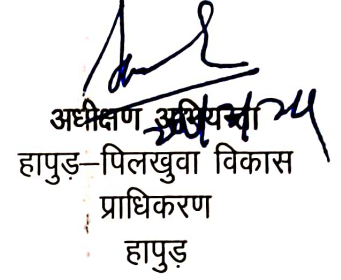 अधीक्षण अभियन्ता
हापुड़–पिलखुवा विकास
प्राधिकरण
हापुड़